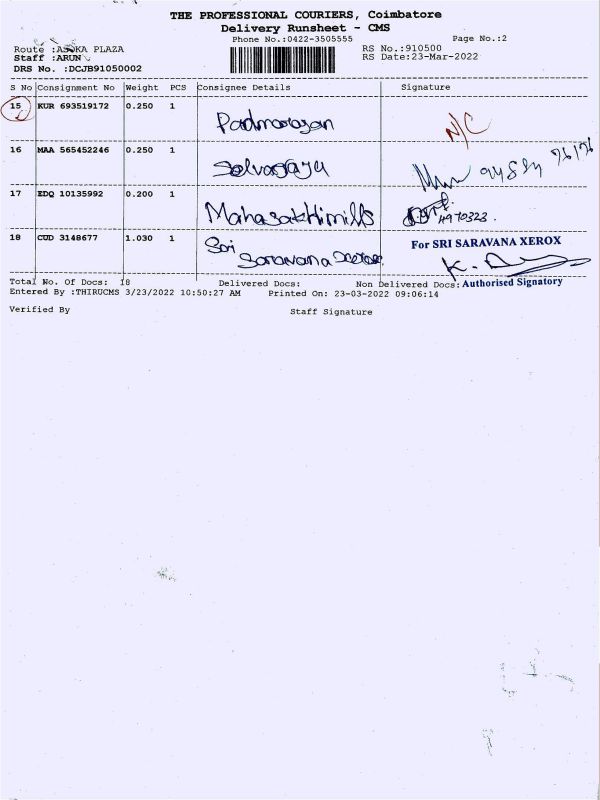 THE PROFESSIONAL COURIERS, Coimbatore
Delivery Runsheet - CMS
Phone No.:0422-3505555 Page No.:2
Route :ASOKA PLAZA RS No.:910500
Staff :ARUN RS Date:23-Mar-2022
DRS No. :DCJB91050002
S No Consignment No Weight PCS Consignee Details Signature
15 KUR 693519172 0.250 1 Padmarajan N/C
16 MAA 565452246 0.250 1 Selvaraju
17 EDQ 10135992 0.200 1 Mahasakthimills
18 CUD 3148677 1.030 1 Sri Saravana
For SRI SARAVANA XEROX
Authorised Signatory
Total No. Of Docs: 18 Delivered Docs: Non Delivered Docs:
Entered By :THIRUCMS 3/23/2022 10:50:27 AM Printed On: 23-03-2022 09:06:14
Verified By Staff Signature